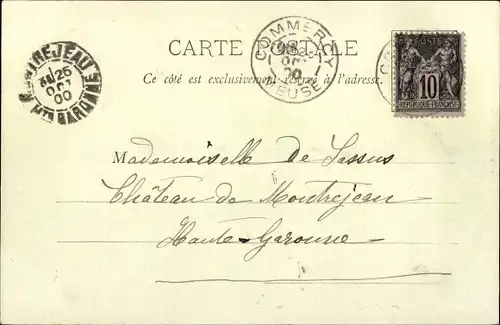 CARTE POSTALE
Ce côté est exclusivement réservé à l'adresse.
COMMERCY
MEUSE
MONTREJEAU
25
OCT
00
Hte GARONNE
POSTES
10
REPUBLIQUE FRANÇAISE
Mademoiselle de Lassus
Château de Montrejeau
Haute-Garonne